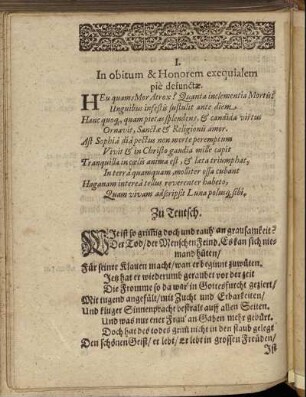 I.
In obitum & Honorem exequialem
piè defunctæ.
HEu quam Mors atrox! Quanta inclementia Mortis!
Unguibus infestis sustulit ante diem
Hanc quoq, quam pietas splendens, & candida virtus
Ornavit, Sancta & Religionis amor.
Ast Sophiâ dia pectus non morte peremptum
Vivit & in Christo gaudia mille capit
Tranquilla in cœlis anima est, & læta triumphat,
In terrâ quamquam molliter ossa cubant
Haganam interea tellus reverenter habeto,
Quam vivam adscripsit Luna polusq, sibi.
Zu Teutsch.
Wie ist so grifftig doch und rauh an grausamkeit
Der Tod/ der Menschen Feind, Es kan sich nie-
mand hüten/
Für seiner Klauen macht/ wan er beginnt zuwüten.
Jetz hat er wiederumb geraubet vor der zeit
Die Fromme so da war in Gottesfurcht geziert/
Mit tugend angefült/ mit Zucht und Erbarkeiten/
Und kluger Sinnenpracht bestralt auff allen Seiten.
Und was nur einer Frau' an Gaben mehr gebürt.
Doch hat des todes grim nicht in den staub gelegt
Den schönen Geist/ er lebt/ Er lebt in grossen Freuden/
Ist